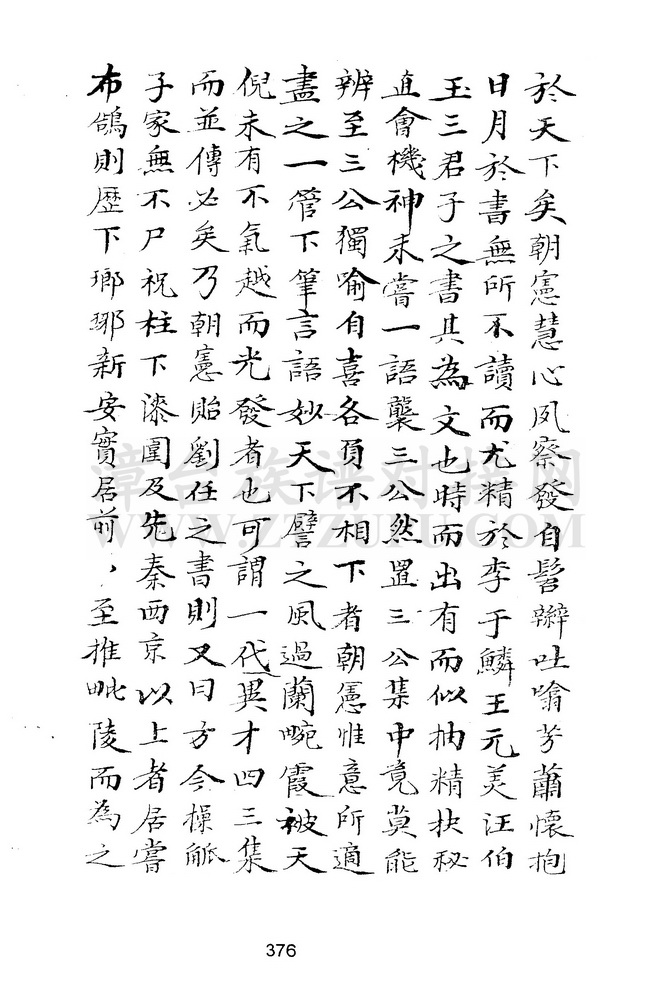 於天下矣朝憲慧心夙察發自髫辮吐噏芳蘭懷抱
日月於書無所不讀而尤精於李于鱗王元美汪伯
玉三君子之書其為文也時而出有而似抽精抉秘
直會機神未嘗一語襲三公然置三公集中竟莫能
辨至三公獨喻自喜各負不相下者朝憲惟意所適
盡之一管下筆言語妙天下譬之風過蘭畹霞被天
倪未有不氣越而光發者也可謂一代異才四三集
而並傳必矣乃朝憲貽劉任之書則又曰方今操觚
子家無不尸祝柱下漆園及先秦西京以上者居嘗
布鵠則歷下瑯琊新安實居前、至推毗陵而為之
漳台族谱对接网
WWW.ZTZUPU.COM
376